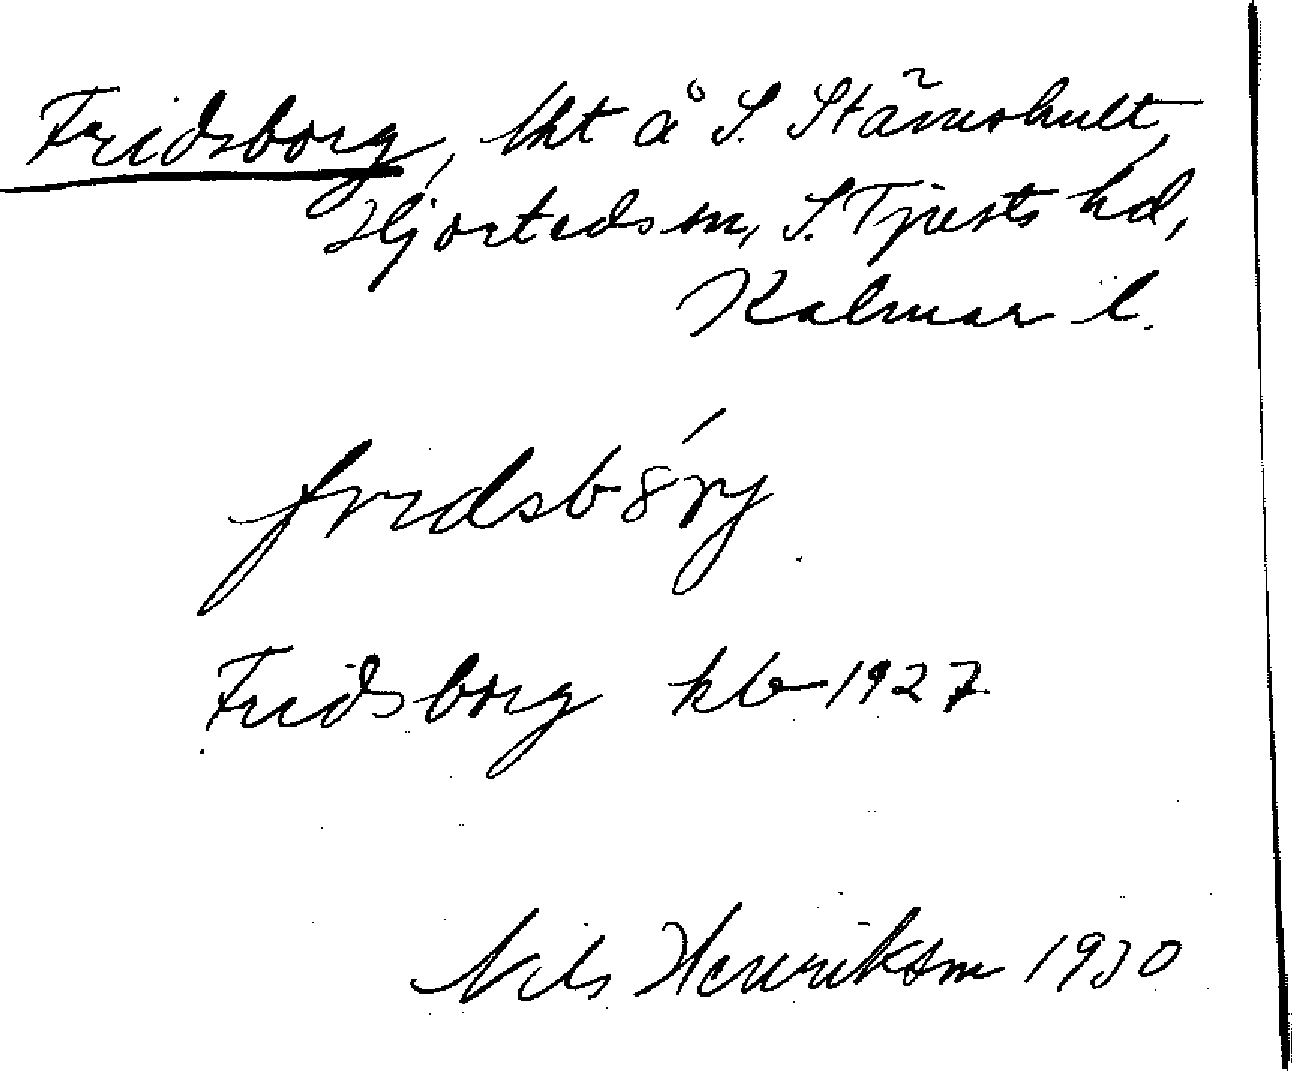 Fridsborg, lht å S. Stämshult,
Hjorteds sn, S. Tjusts hd,
Kalmar l.
fridsbórj
Fridsborg kb 1927
Nils Henrikson 1930